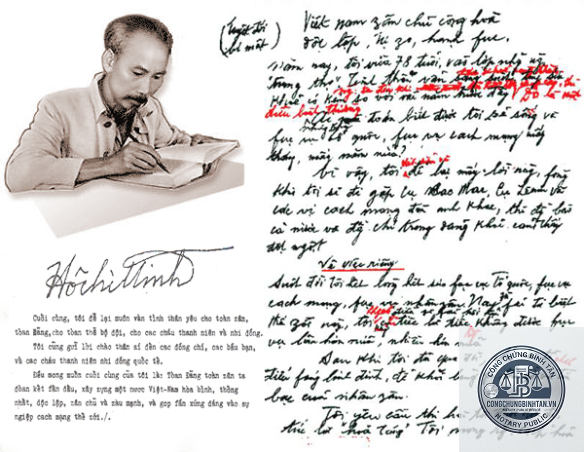 (Tuyệt đối
bí mật)
Việt nam zân chủ cộng hoà
độc lập, tự zo, hạnh fuc.
Năm nay, tôi vừa 78 tuổi, vào lớp những
"trung thọ" Tinh thần vẫn
khoẻ có kém so với vài năm trước đây
điều bình thường
toán biết được tôi sẽ sống và
fục vụ tổ quốc, fục vụ cách mạng mấy
tháy, mấy năm nữa?
Vì vậy, tôi để lại mấy lời này, fòng
khi tôi sẽ đi gặp cụ Các Mac, cụ Lênin và
các vị cách mạng đàn anh khác, thì đồng bào
cả nước và đồng chí trong đảng khỏi cảm thấy
đột ngột
Về việc riêng
Suốt đời tôi hết lòng hết sức fục vụ Tổ quốc, fục vụ
cách mạng, fục vụ nhân zân. Nay fải từ biệt
thế zới này, tôi tiếc là tiếc không được fục
vụ lâu hơn nữa, nhiều hơn nữa
Sau khi tôi đã qua
điếu fúng linh đình, để khỏi
bạc của nhân zân.
Tôi yêu cầu thi hài
tức là "hoả táng" Tôi mong
HồChíMinh
Cuối cùng, tôi để lại muôn vàn tình thân yêu cho toàn zân,
toàn Đảng, cho toàn thể bộ đội, cho các cháu thanh niên và nhi đồng.
Tôi cũng gửi lời chào thân ái đến các đồng chí, các bầu bạn,
và các cháu thanh niên nhi đồng quốc tế.
Điều mong muốn cuối cùng của tôi là: Toàn Đảng toàn zân ta
đoàn kết fấn đấu, xây zựng một nước Việt-Nam hòa bình, thống
nhất, độc lập, zân chủ và zàu mạnh, và góp fần xứng đáng vào sự
nghiệp cách mạng thế zới./.
CÔNG CHỨNG BÌNH TÂN
CONGCHUNGBINHTAN.VN
NOTARY PUBLIC